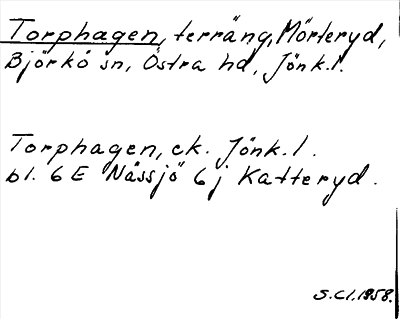 Torphagen, terräng, Mörteryd,
Björkö sn, Östra hd, Jönk.l.
Torphagen, ek. Jönk.l.
bl. 6 E Nässjö 6 j Katteryd.
S.Cl.1958.